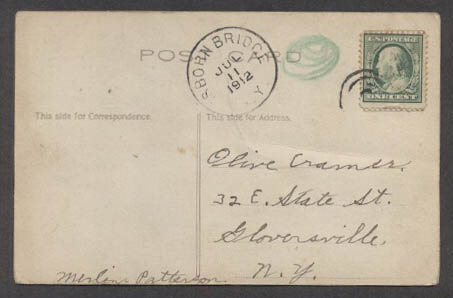 U.S. POSTAGE
POST CARD
BORN BRIDGE
JUL
11
1912
Y.
ONE CENT
This side for Correspondence.
This side for Address.
Olive Cramer.
32 E. State St.
Gloversville.
N.Y.
Patterson